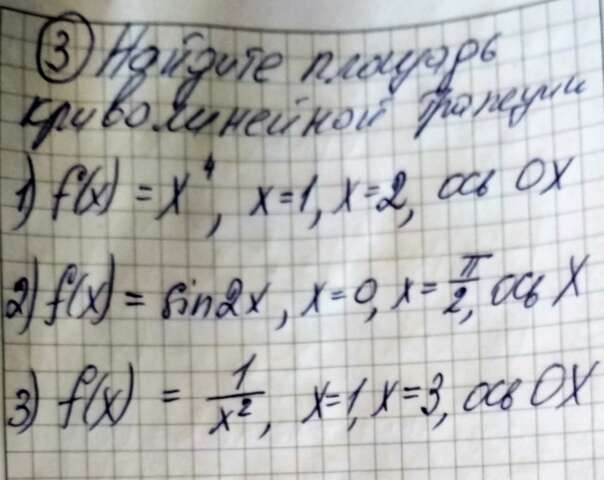 ③ Найдите площадь
криволинейной трапеции
1) f(x) = x⁴, x=1, x=2, ось OX
2) f(x) = sin2x, x=0, x=π/2, ось X
3) f(x) = 1/x², x=1, x=3, ось OX